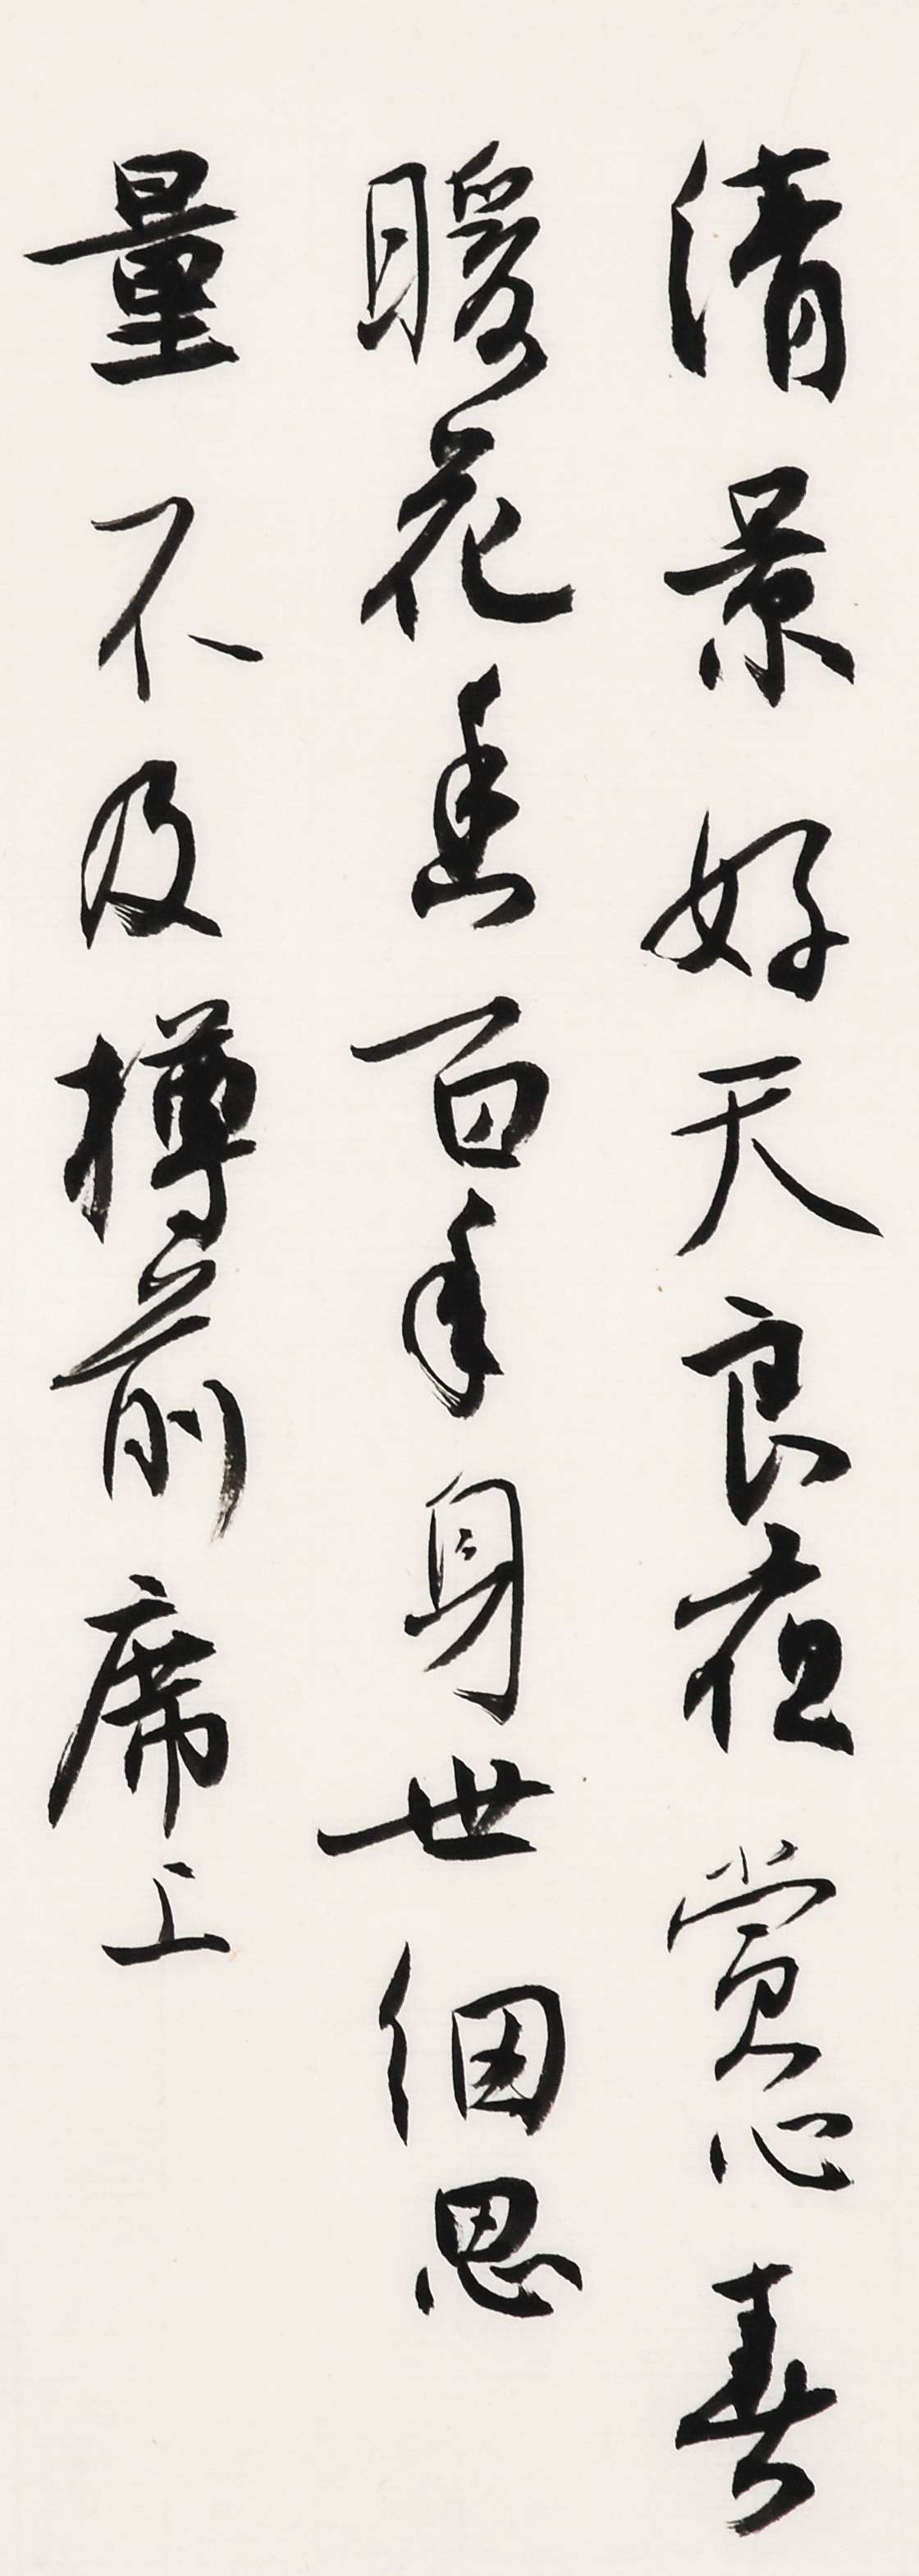 清景好天良夜賞心春
暖花香百年身世細思
量不及樽前席上